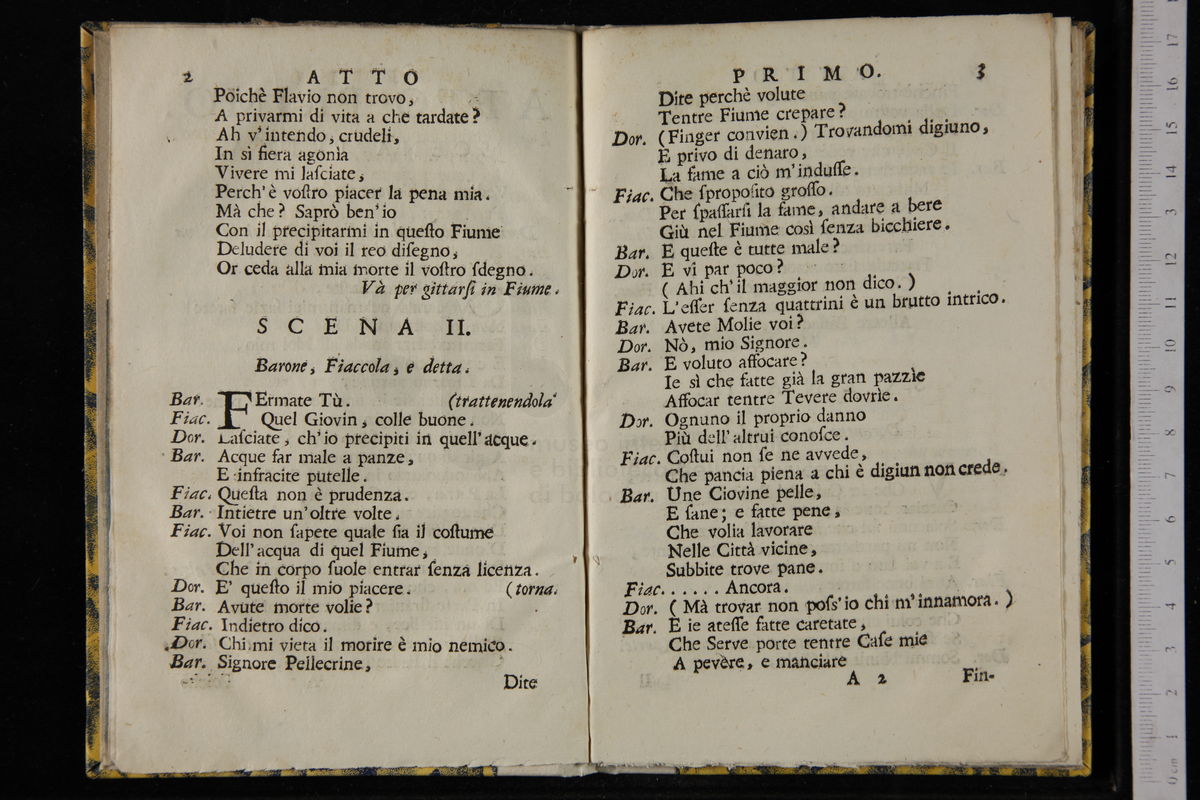 2 ATTO
Poichè Flavio non trovo,
A privarmi di vita a che tardate?
Ah v'intendo, crudeli,
In sì fiera agonìa
Vivere mi laſciate,
Perch'è voſtro piacer la pena mia.
Mà che? Saprò ben'io
Con il precipitarmi in queſto Fiume
Deludere di voi il reo diſegno,
Or ceda alla mia morte il voſtro ſdegno.
Và per gittarſi in Fiume.
SCENA II.
Barone, Fiaccola, e detta.
Bar. FErmate Tù. (trattenendola
Fiac. Quel Giovin, colle buone.
Dor. Laſciate, ch'io precipiti in quell'acque.
Bar. Acque far male a panze,
E infracite putelle.
Fiac. Queſta non è prudenza.
Bar. Intietre un'oltre volte.
Fiac. Voi non ſapete quale ſia il coſtume
Dell'acqua di quel Fiume,
Che in corpo ſuole entrar ſenza licenza.
Dor. E' queſto il mio piacere. (torna.
Bar. Avute morte volie?
Fiac. Indietro dico.
Dor. Chi mi vieta il morire è mio nemico.
Bar. Signore Pellecrine,
Dite
PRIMO. 3
Dite perchè volute
Tentre Fiume crepare?
Dor. (Finger convien.) Trovandomi digiuno,
E privo di denaro,
La fame a ciò m'induſſe.
Fiac. Che ſpropoſito groſſo.
Per ſpaſſarſi la fame, andare a bere
Giù nel Fiume così ſenza bicchiere.
Bar. E queſte è tutte male?
Dor. E vi par poco?
( Ahi ch'il maggior non dico. )
Fiac. L'eſſer ſenza quattrini è un brutto intrico.
Bar. Avete Molie voi?
Dor. Nò, mio Signore.
Bar. E voluto affocare?
Ie sì che fatte già la gran pazzìe
Affocar tentre Tevere dovrìe.
Dor. Ognuno il proprio danno
Più dell'altrui conoſce.
Fiac. Coſtui non ſe ne avvede,
Che pancia piena a chi è digiun non crede.
Bar. Une Giovine pelle,
E ſane; e fatte pene,
Che volia lavorare
Nelle Città vicine,
Subbite trove pane.
Fiac. . . . . . . Ancora.
Dor. ( Mà trovar non poſs'io chi m'innamora. )
Bar. E ie ateſſe fatte caretate,
Che Serve porte tentre Caſe mie
A pevère, e manciare
A 2 Fin-